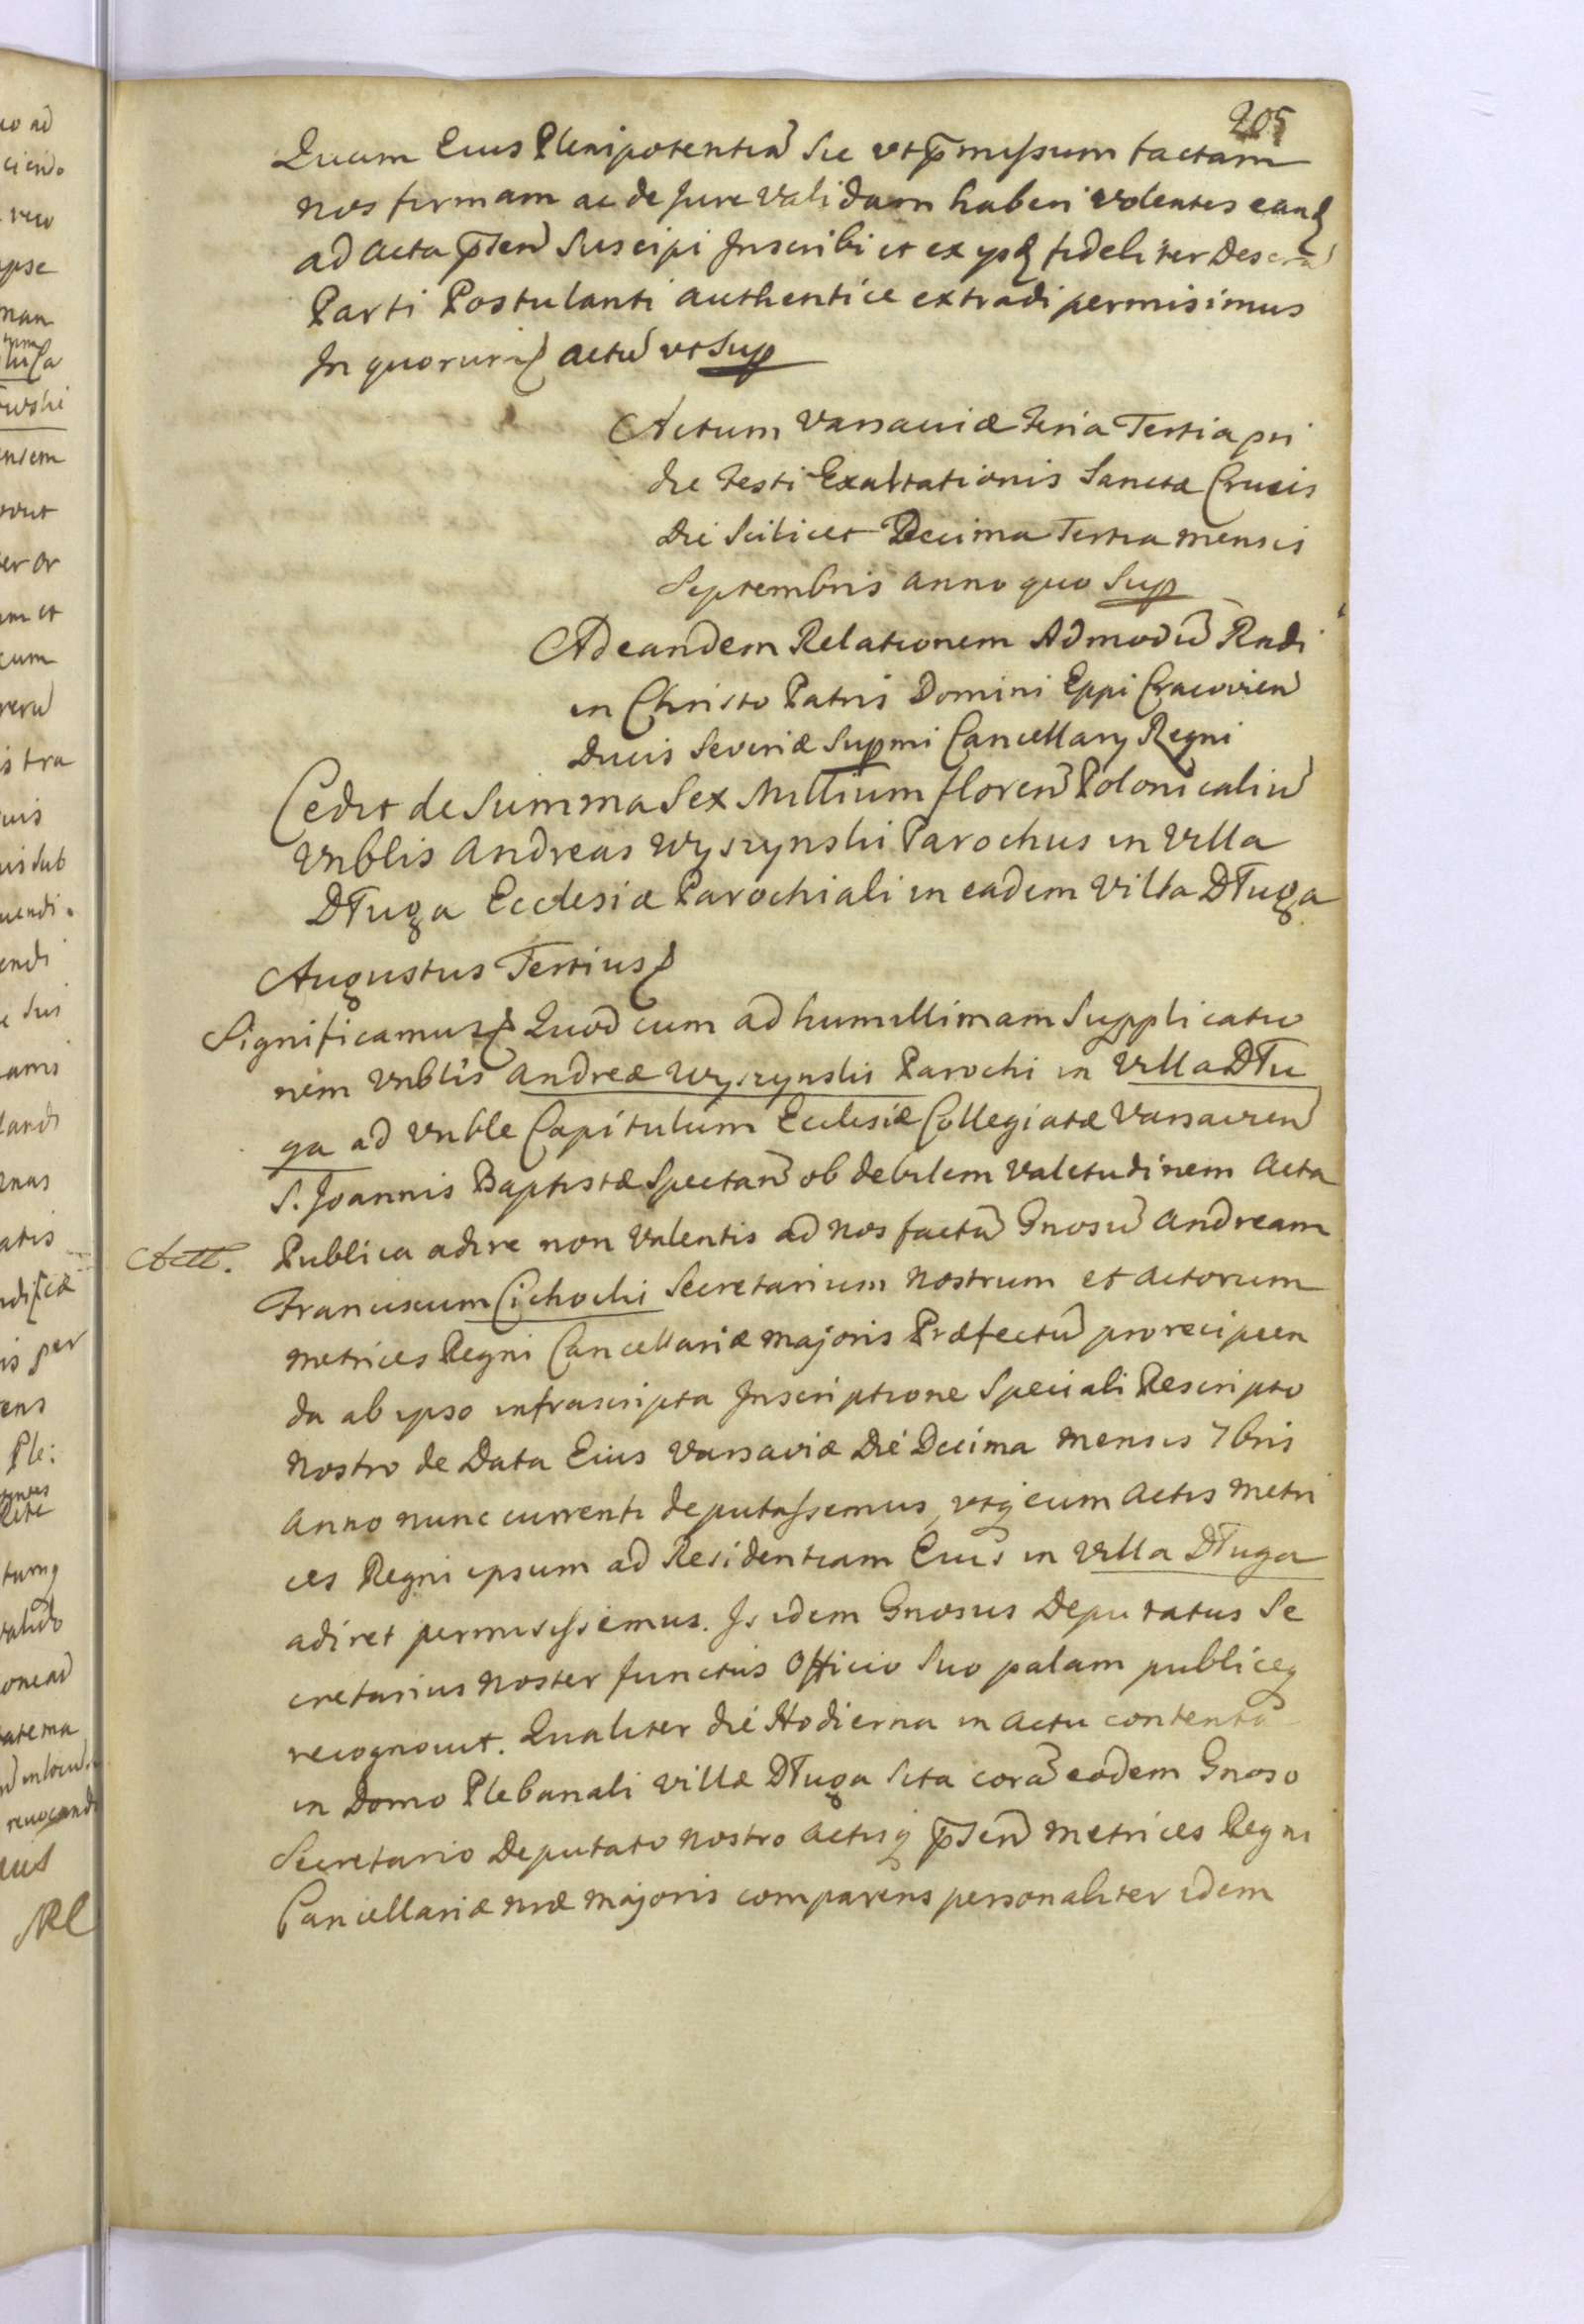 205
Quam Eius Plenipotentiã Sic ut p̃missum factam
nos firmam ac de Jure Validam haberi Volentes eand
ad Acta p̃sen Suscipi Inscribi et ex ysd fideliter Descri
Parti Postulanti authentice extradi permisimus
In quorum Actũ ut Sup
Actum Varsaviæ Feria Tertia pri
die Festi Exaltationis Sanctæ Crucis
Die Scilicet Decima Tertia mensis
Septembris Anno quo Sup
Ad eandem Relationem Admodũ Rndi
in Christo Patris Domini Eppi Cracovien
Ducis Severiæ Supmi Cancellary Regni
Cedit de Summa Sex Millium floren Polonicaliũ
Vnblis Andreas Wyszynski Parochus in Villa
Długa Ecclesiæ Parochiali in eadem Villa Długa
Augustus Tertius
Significamus Quod cum ad humillimam Supplicatio
nem Vnblis Andreæ Wyszynski Parochi in Villa Dłu
ga ad Vnble Capitulum Ecclesiæ Collegiatæ Varsavien
S. Joannis Baptistæ Spectan ob debilem Valetudinem Acta
Actt. Publica adire non Valentis ad Nos factã Gnosũ Andream
Franciscum Cichocki Secretarium Nostrum et Actorum
Metrices Regni Cancellariæ Majoris Præfectũ pro recipien
da ab ipso infrascripta Inscriptione Speciali Rescripto
Nostro de Data Eius Varsaviæ Die Decima Mensis 7bris
Anno nunc currenti deputassemus, utq cum Actis Metri
ces Regni ipsum ad Residentiam Eius in Villa Długa
adiret permisissemus. Is idem Gnosus Deputatus Se
cretarius Noster functus Officio Suo palam publiceq
recognovit. Qualiter die Hodierna in Actu contenta
in Domo Plebanali Villæ Długa Sita corã eodem Gnoso
Secretario Deputato Nostro Actisq p̃sen Metrices Regni
Cancellariæ Nræ Majoris comparens personaliter idem